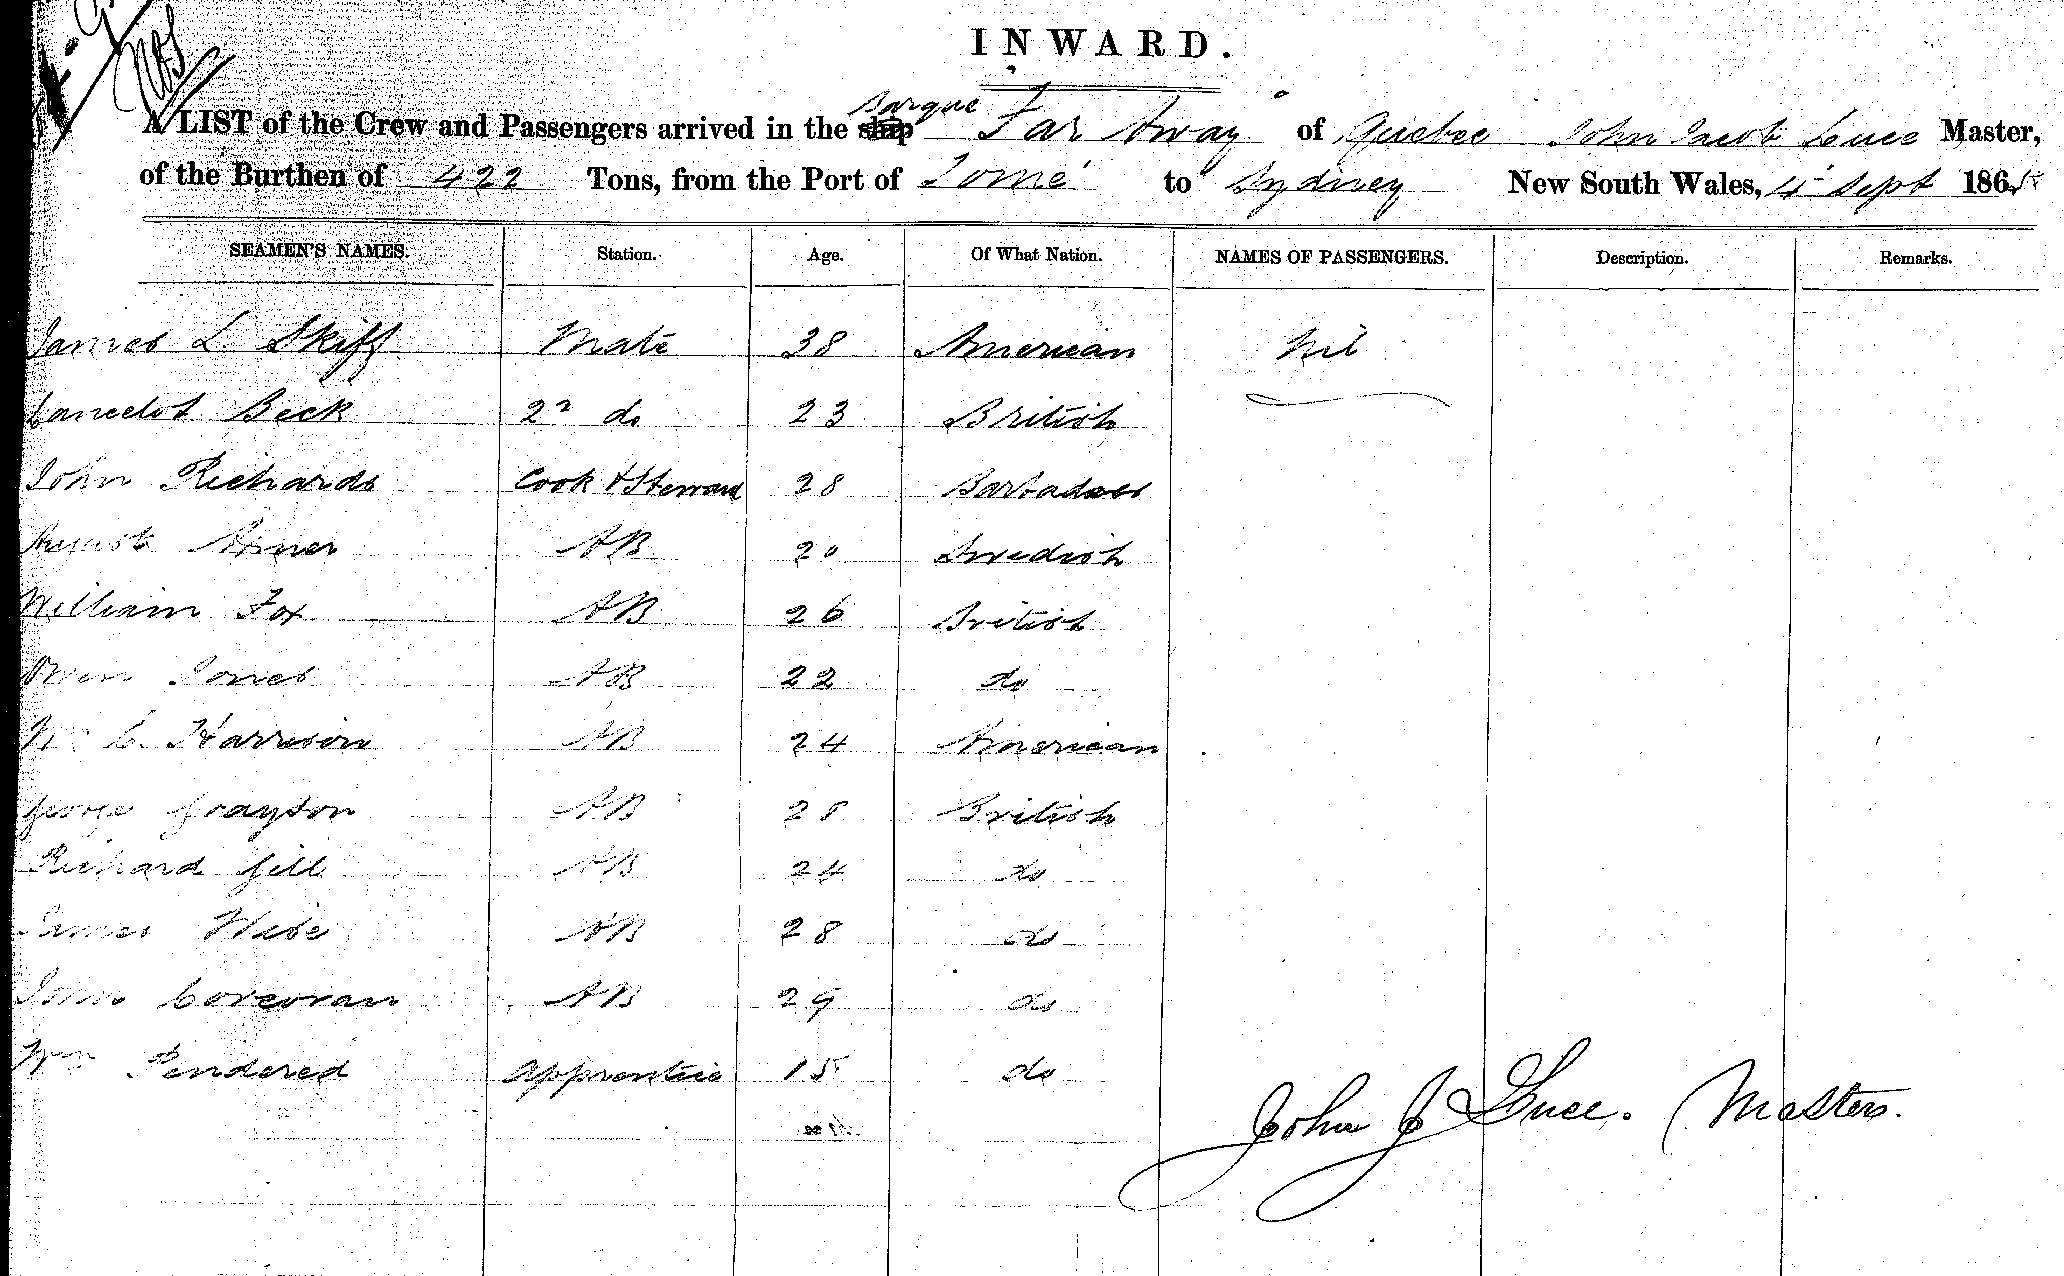 INWARD.
A LIST of the Crew and Passengers arrived in the ship Barque Far Away of Quebec John Jacob Luce Master,
of the Burthen of 422 Tons, from the Port of Tomé to Sydney New South Wales, 4 Sept 1865
SEAMEN'S NAMES. Station. Age. Of What Nation. NAMES OF PASSENGERS. Description. Remarks.
James L Skiff Mate 38 American Nil
Lancelot Beck 2n do 23 British
John Richards Cook & Steward 28 Barbadoes
August AB 20 Swedish
William Fox AB 26 British
Owen Jones AB 22 do
Wm C. Harrison AB 24 American
George Grayson AB 28 British
Richard Gill AB 24 do
James Wise AB 28 do
John Corcoran AB 29 do
Wm Pendered Apprentice 15 do
John J Luce. Master.